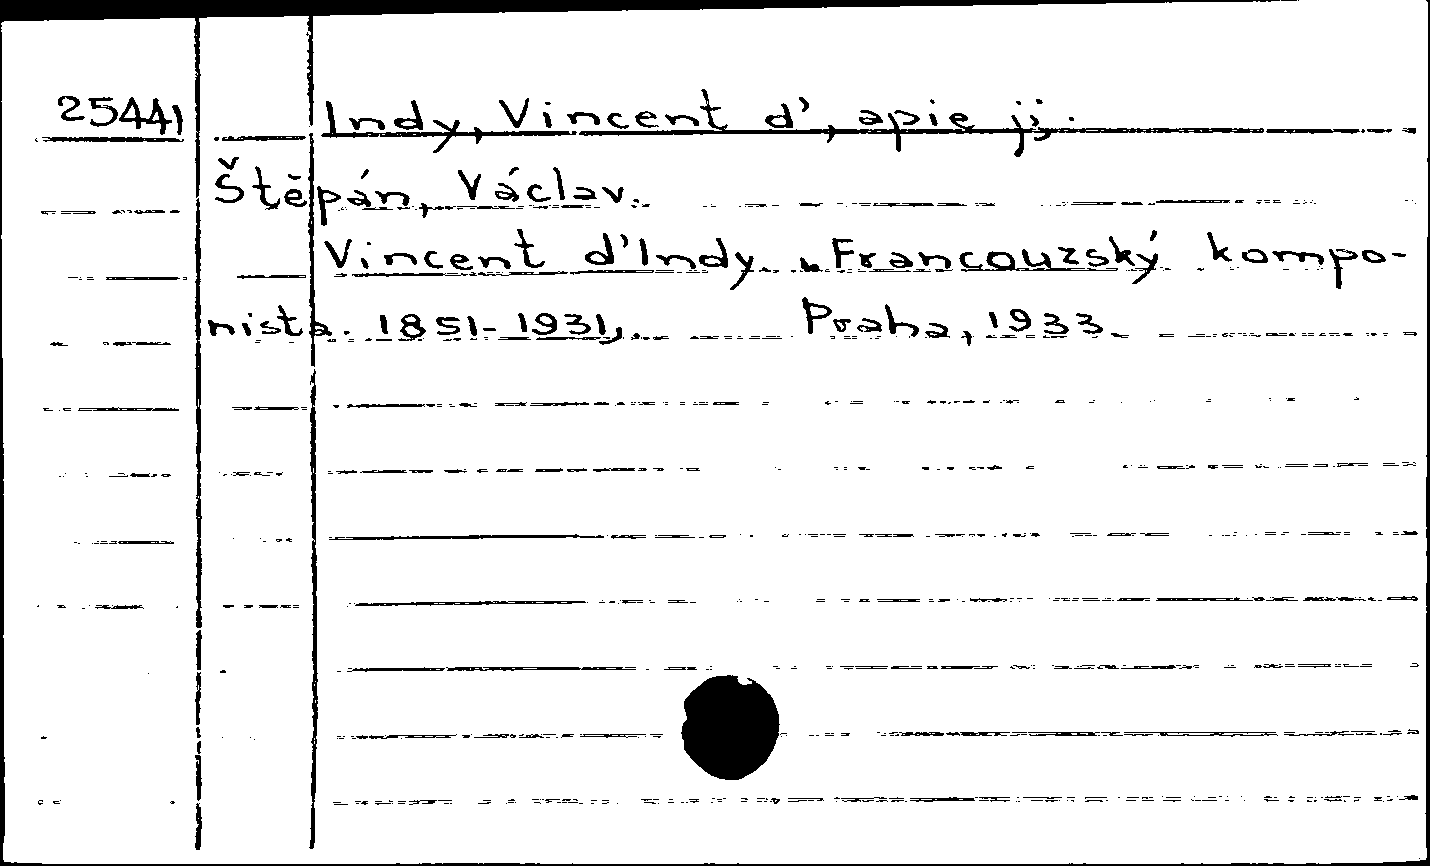 25441 Indy, Vincent d', apie jį.
Štěpán, Václav.
Vincent d'Indy. „Francouzský kompo-
nista. 1851-1931„. Praha, 1933.